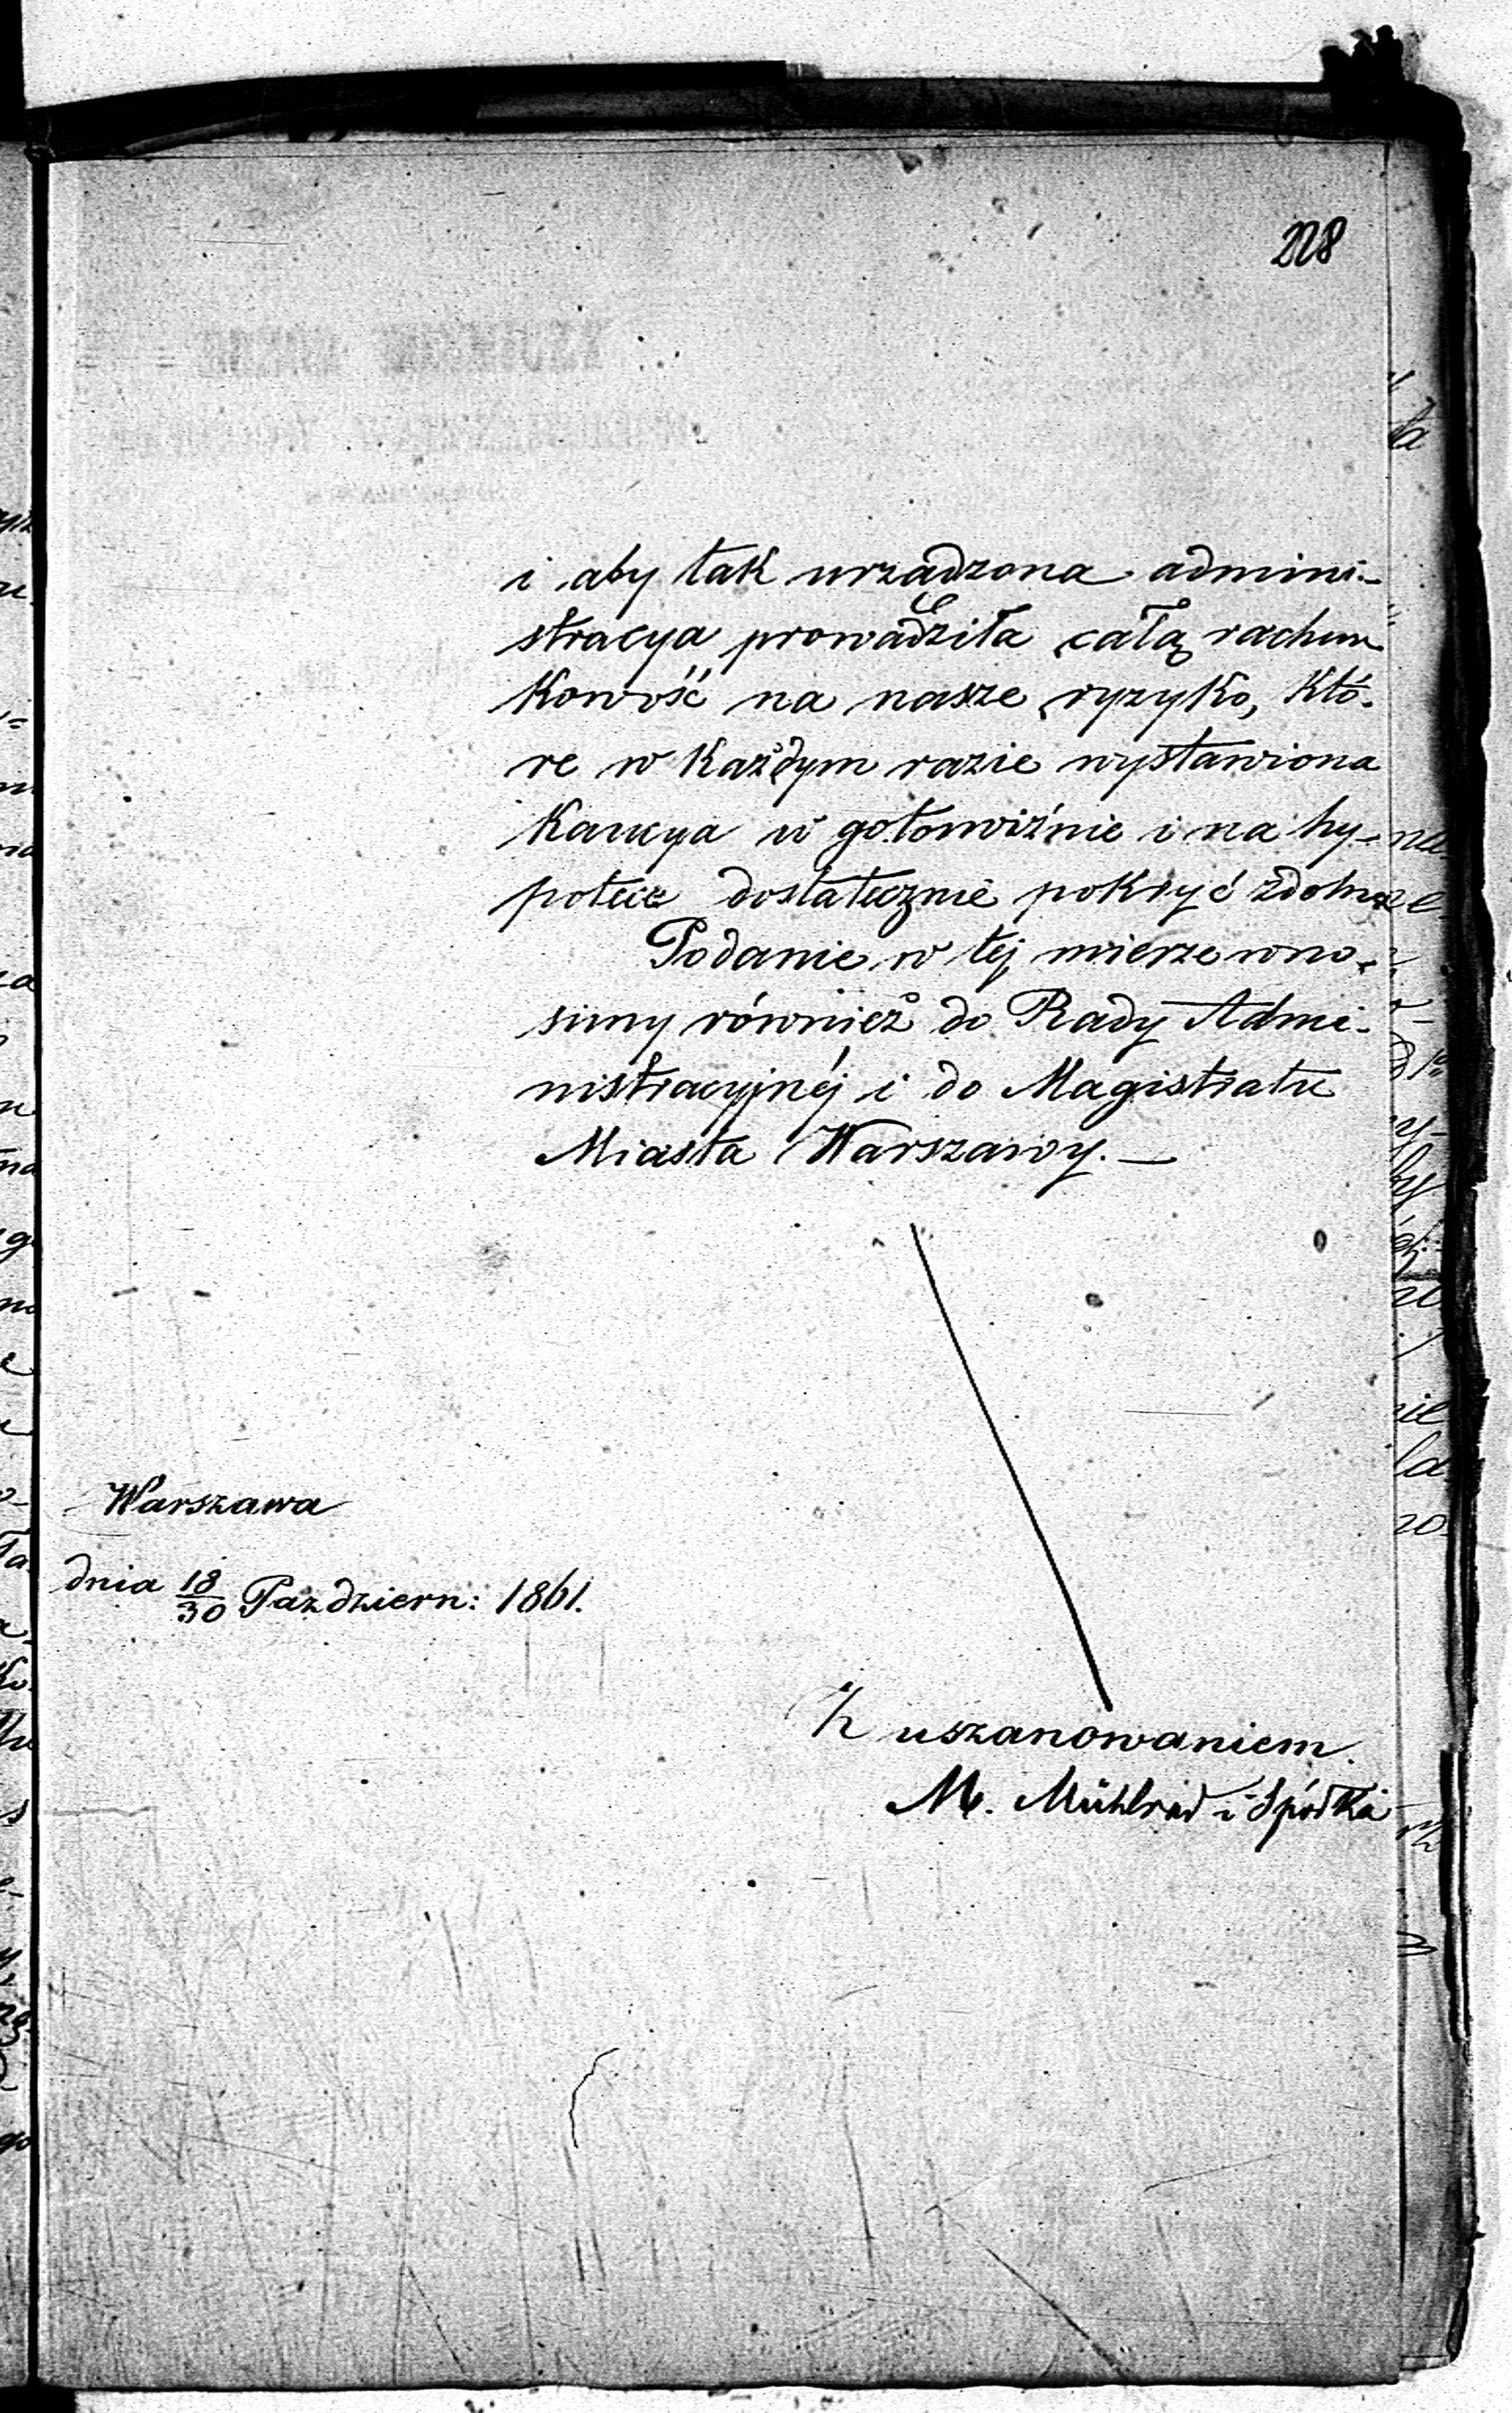 228
i aby tak urządzona admini-
stracya prowadziła całą rachun
kowość na nasze ryzyko, któ-
re w każdym razie wystawiona
kaucya w gotowiźnie i na hy-
potece dostatecznie pokryć zdolna
Podanie w tej mierze wno-
simy również do Rady Admi-
nistracyjnéj i do Magistratu
Miasta Warszawy. —
Warszawa
dnia 18/30 Październ: 1861.
Z uszanowaniem.
M. Mühlrad i Spółka